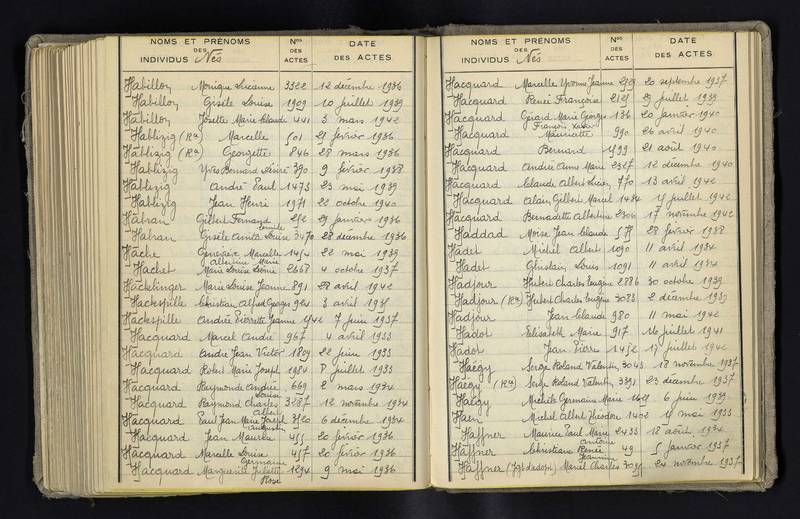 NOMS ET PRÉNOMS
DES
INDIVIDUS Nés
Nos
DES
ACTES
DATE
DES ACTES
Habillon Monique Lucienne 3322 12 décembre 1936
Habillon Gisèle Louise 1909 10 juillet 1939
Habillon Josette Marie Claude 441 3 mars 1942
Hablizig (Ra) Marcelle 501 21 février 1936
Hablizig (Ra) Georgette 846 28 mars 1936
Hablizig Yves Bernard 390 9 février 1938
Hablizig André Paul 1473 23 mai 1939
Hablizig Jean Henri 1971 22 octobre 1940
Habran Gilbert Fernand 252 29 janvier 1936
Habran Gisèle Louise 3470 28 décembre 1936
Hache Geneviève Marcelle 1454 22 mai 1939
Albertine Marie
Hachet Marie Louise 2668 4 octobre 1937
Häcklinger Marie Louise Jeanne 891 28 avril 1942
Hackspille Christian Alfred Georges 924 3 avril
Hackspille Andrée Pierrette Jeanne 1542 7 juin 1937
Hacquard Marcel André 967 4 avril 1933
Hacquard André Jean Victor 1809 22 juin 1933
Hacquard Robert Marie Joseph 1984 8 juillet 1933
Hacquard Raymonde Andrée 669 2 mars 1934
Louise
Hacquard Raymond Charles 3287 12 novembre 1934
Albert
Hacquard Paul Jean Marie Joseph 3520 6 décembre 1934
Augustin
Hacquard Jean Maurice 455 20 février 1936
Hacquard Marcelle Louise 457 20 février 1936
Germaine
Hacquard Marguerite 1294 9 mai 1936
Rose
NOMS ET PRÉNOMS
DES
INDIVIDUS Nés
Nos
DES
ACTES
DATE
DES ACTES
Hacquard Marcelle Yvonne Jeanne 2529 20 septembre 1937
Hacquard René Françoise 2125 29 juillet 1939
Hacquard Gérard Marie Georges 136 20 janvier 1940
François Xavier
Hacquard Mauricette 990 26 avril 1940
Hacquard Bernard 1799 21 août 1940
Hacquard Andrée Anne Marie 2327 12 décembre 1940
Hacquard Claude Albert Lucien 770 13 avril 1942
Hacquard Alain Gilbert Marcel 1484 15 juillet 1942
Hacquard Bernadette Albertine 2306 17 novembre 1942
Haddad Moïse Jean Claude 575 28 février 1938
Hadet Michel Albert 1090 11 avril 1934
Hadet Ghislain Louis 1091 11 avril 1934
Hadjour Hubert Charles Eugène 2886 30 octobre 1939
Hadjour (Ra) Hubert Charles Eugène 3088 2 décembre 1939
Hadjour Jean Claude 980 11 mai 1942
Hadot Elisabeth Marie 917 26 juillet 1941
Hadot Jean Pierre 1452 17 juillet 1942
Haegy Serge Roland Valentin 3043 18 novembre 1937
Haegy (Ra) Serge Roland Valentin 3391 23 décembre 1937
Haegy Michèle Germaine Marie 1621 6 juin 1939
Haen Michel Albert Théodore 1402 15 mai 1933
Haffner Maurice Paul Marie 2433 18 août 1934
Antoine
Haffner Christiane Renée 49 5 janvier 1937
Jeannine
Haffner Marcel Charles 3095 24 novembre 1937